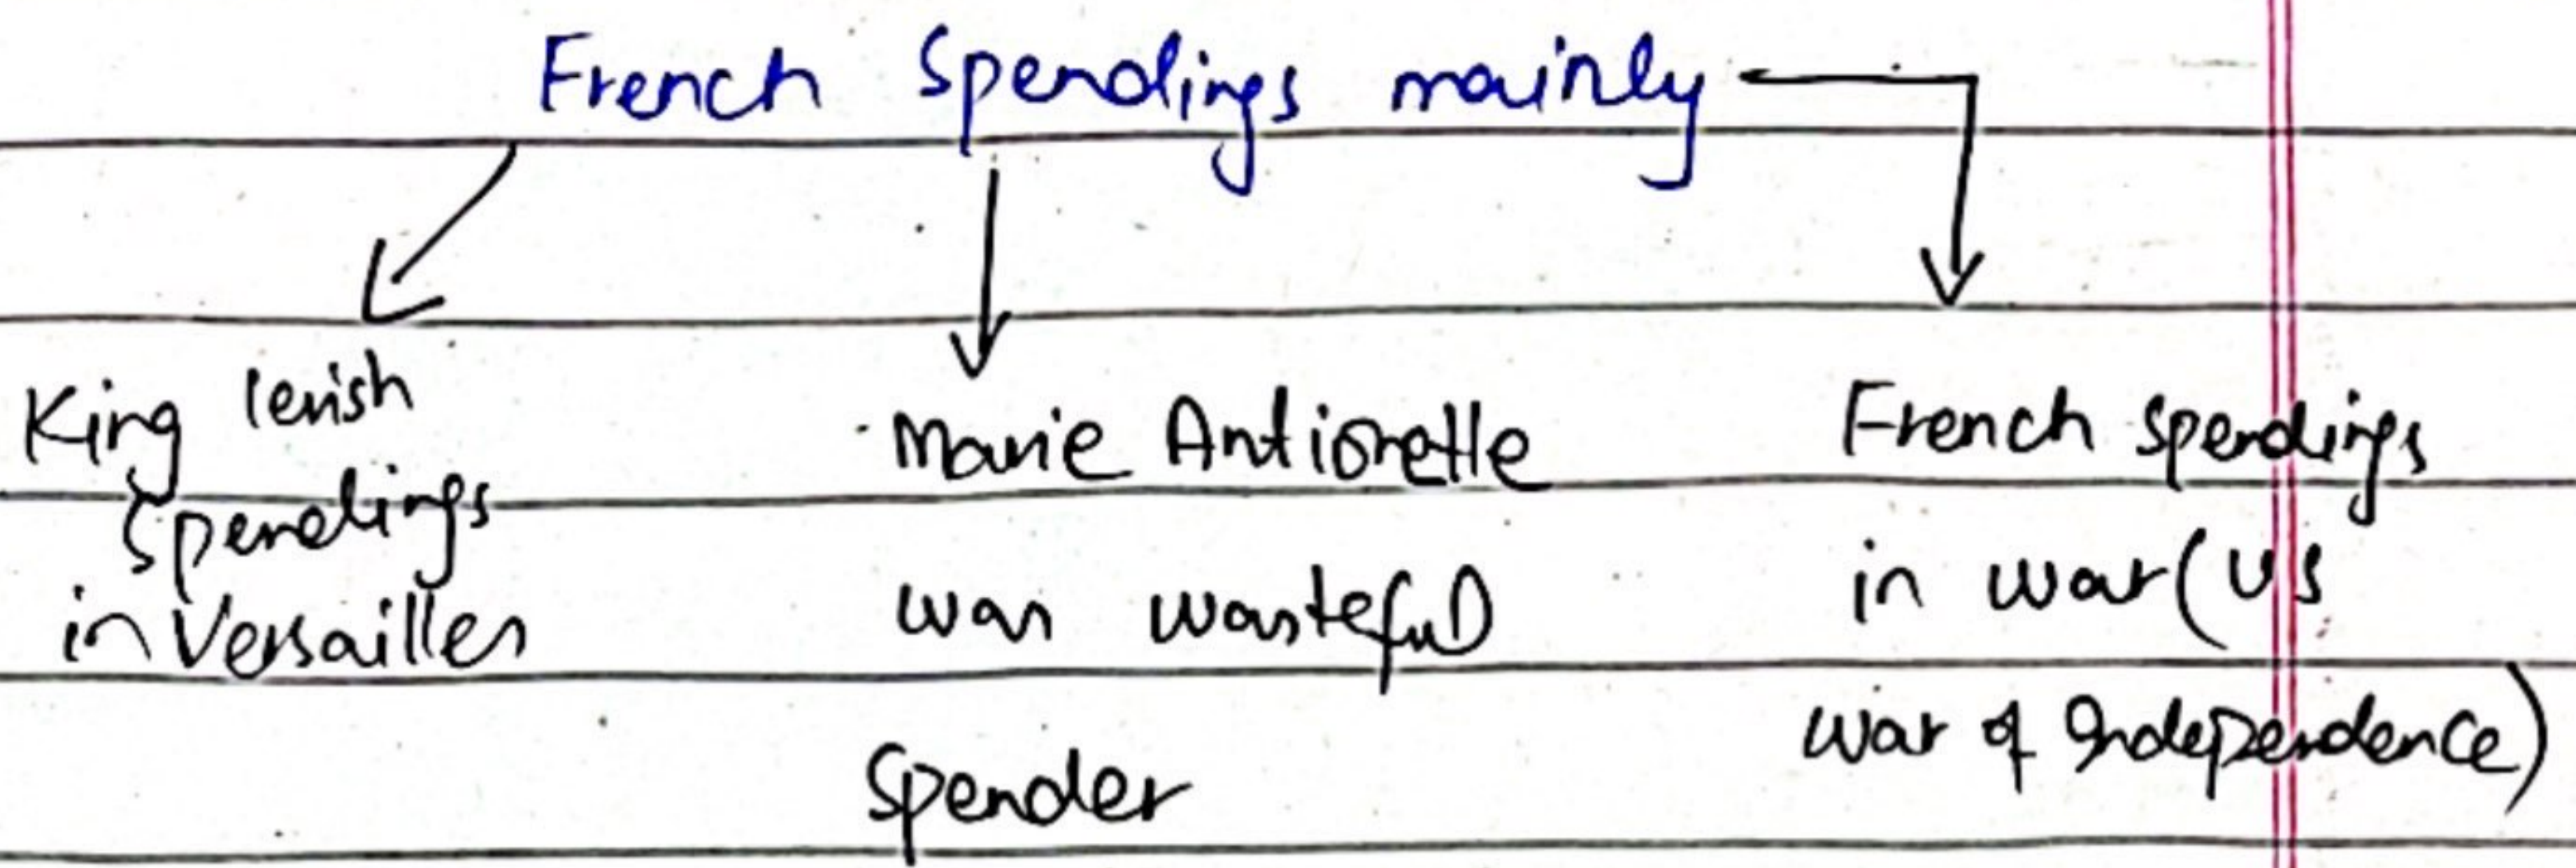 French Spendings mainly
King lerish
Spendings
in Versailles
Marie Antionette
was wasteful
Spender
French spendings
in war (US
war of Independence)